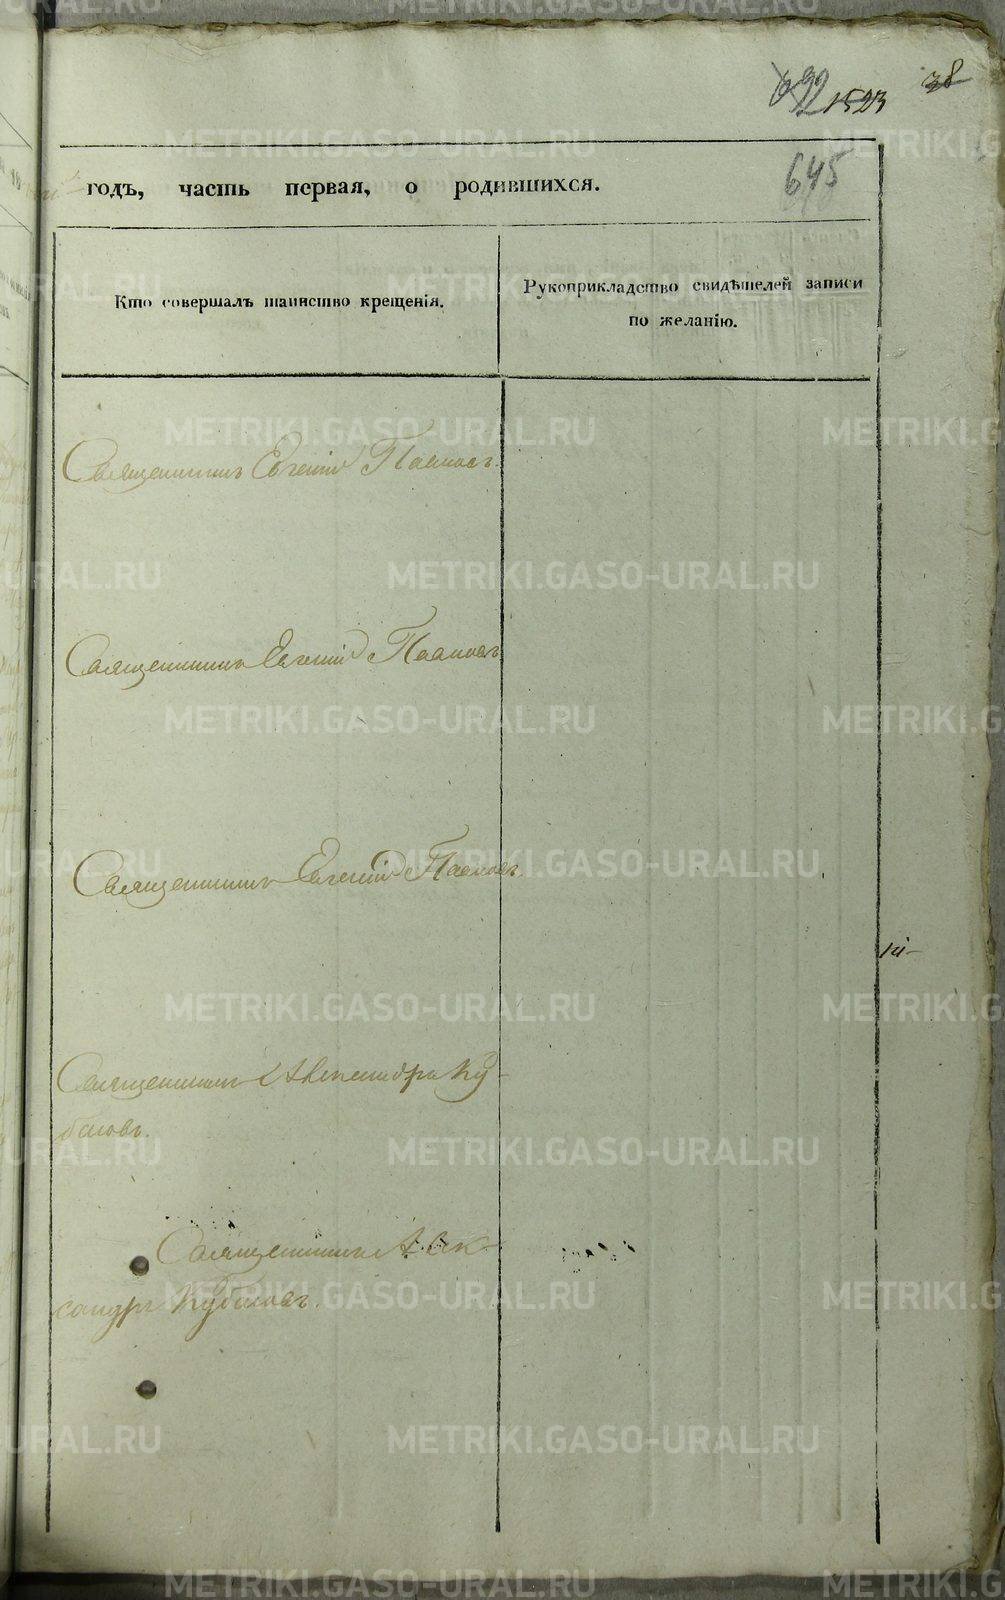 38
1523
645
годъ, часть первая, о родившихся.
Кто совершалъ таинство крещенія.
Рукоприкладство свидѣтелей записи
по желанію.
Священникъ Евгеній
Священникъ Евгеній
Священникъ Евгеній
Священникъ Александръ Ку-
баловъ.
Священникъ Алек-
сандръ Кубаловъ.
METRIKI.GASO-URAL.RU